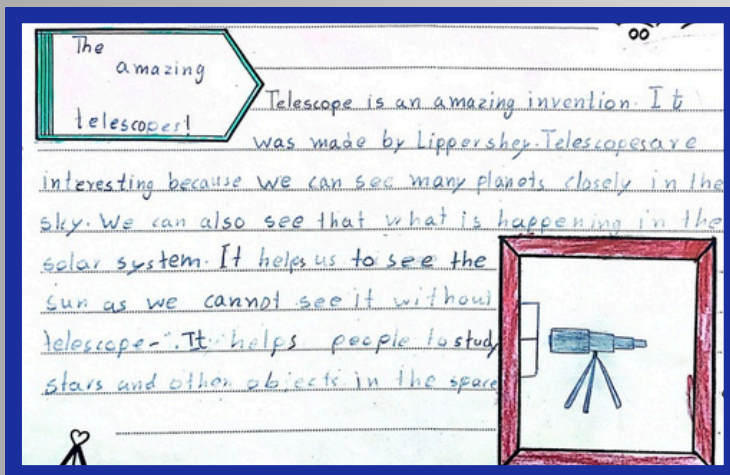 The
amazing
telescopes!
Telescope is an amazing invention. It
was made by Lippershey. Telescopes are
interesting because we can see many planets closely in the
sky. We can also see that what is happening in the
solar system. It helps us to see the
sun as we cannot see it without
telescope-". It helps people to study
stars and other objects in the space